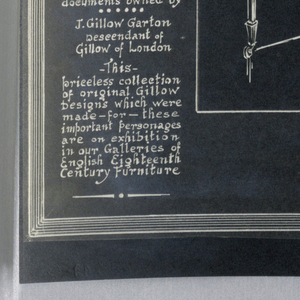 documents owned by
J. Gillow Garton
Descendant of
Gillow of London
-This-
priceless collection
of original Gillow
Designs which were
made-for-these
important personages
are on exhibition
in our Galleries of
English Eighteenth
Century Furniture